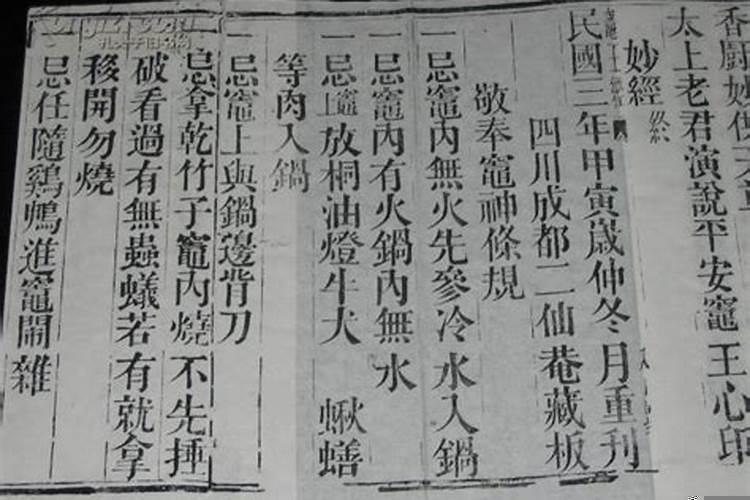 香厨妙
太上老君演說平安竈王心印
妙經終
民國三年甲寅歲仲冬月重刊
四川成都二仙菴藏板
敬奉竈神條規
一忌竈內無火先參冷水入鍋
一忌竈內有火鍋內無水
一忌竈上放桐油燈牛犬 蝦蟮
等肉入鍋
一忌竈上與鍋邊背刀
忌拿乾竹子竈內燒不先捶
破看過有無蟲蟻若有就拿
移開勿燒
忌任隨鷄鴨進竈鬧雜